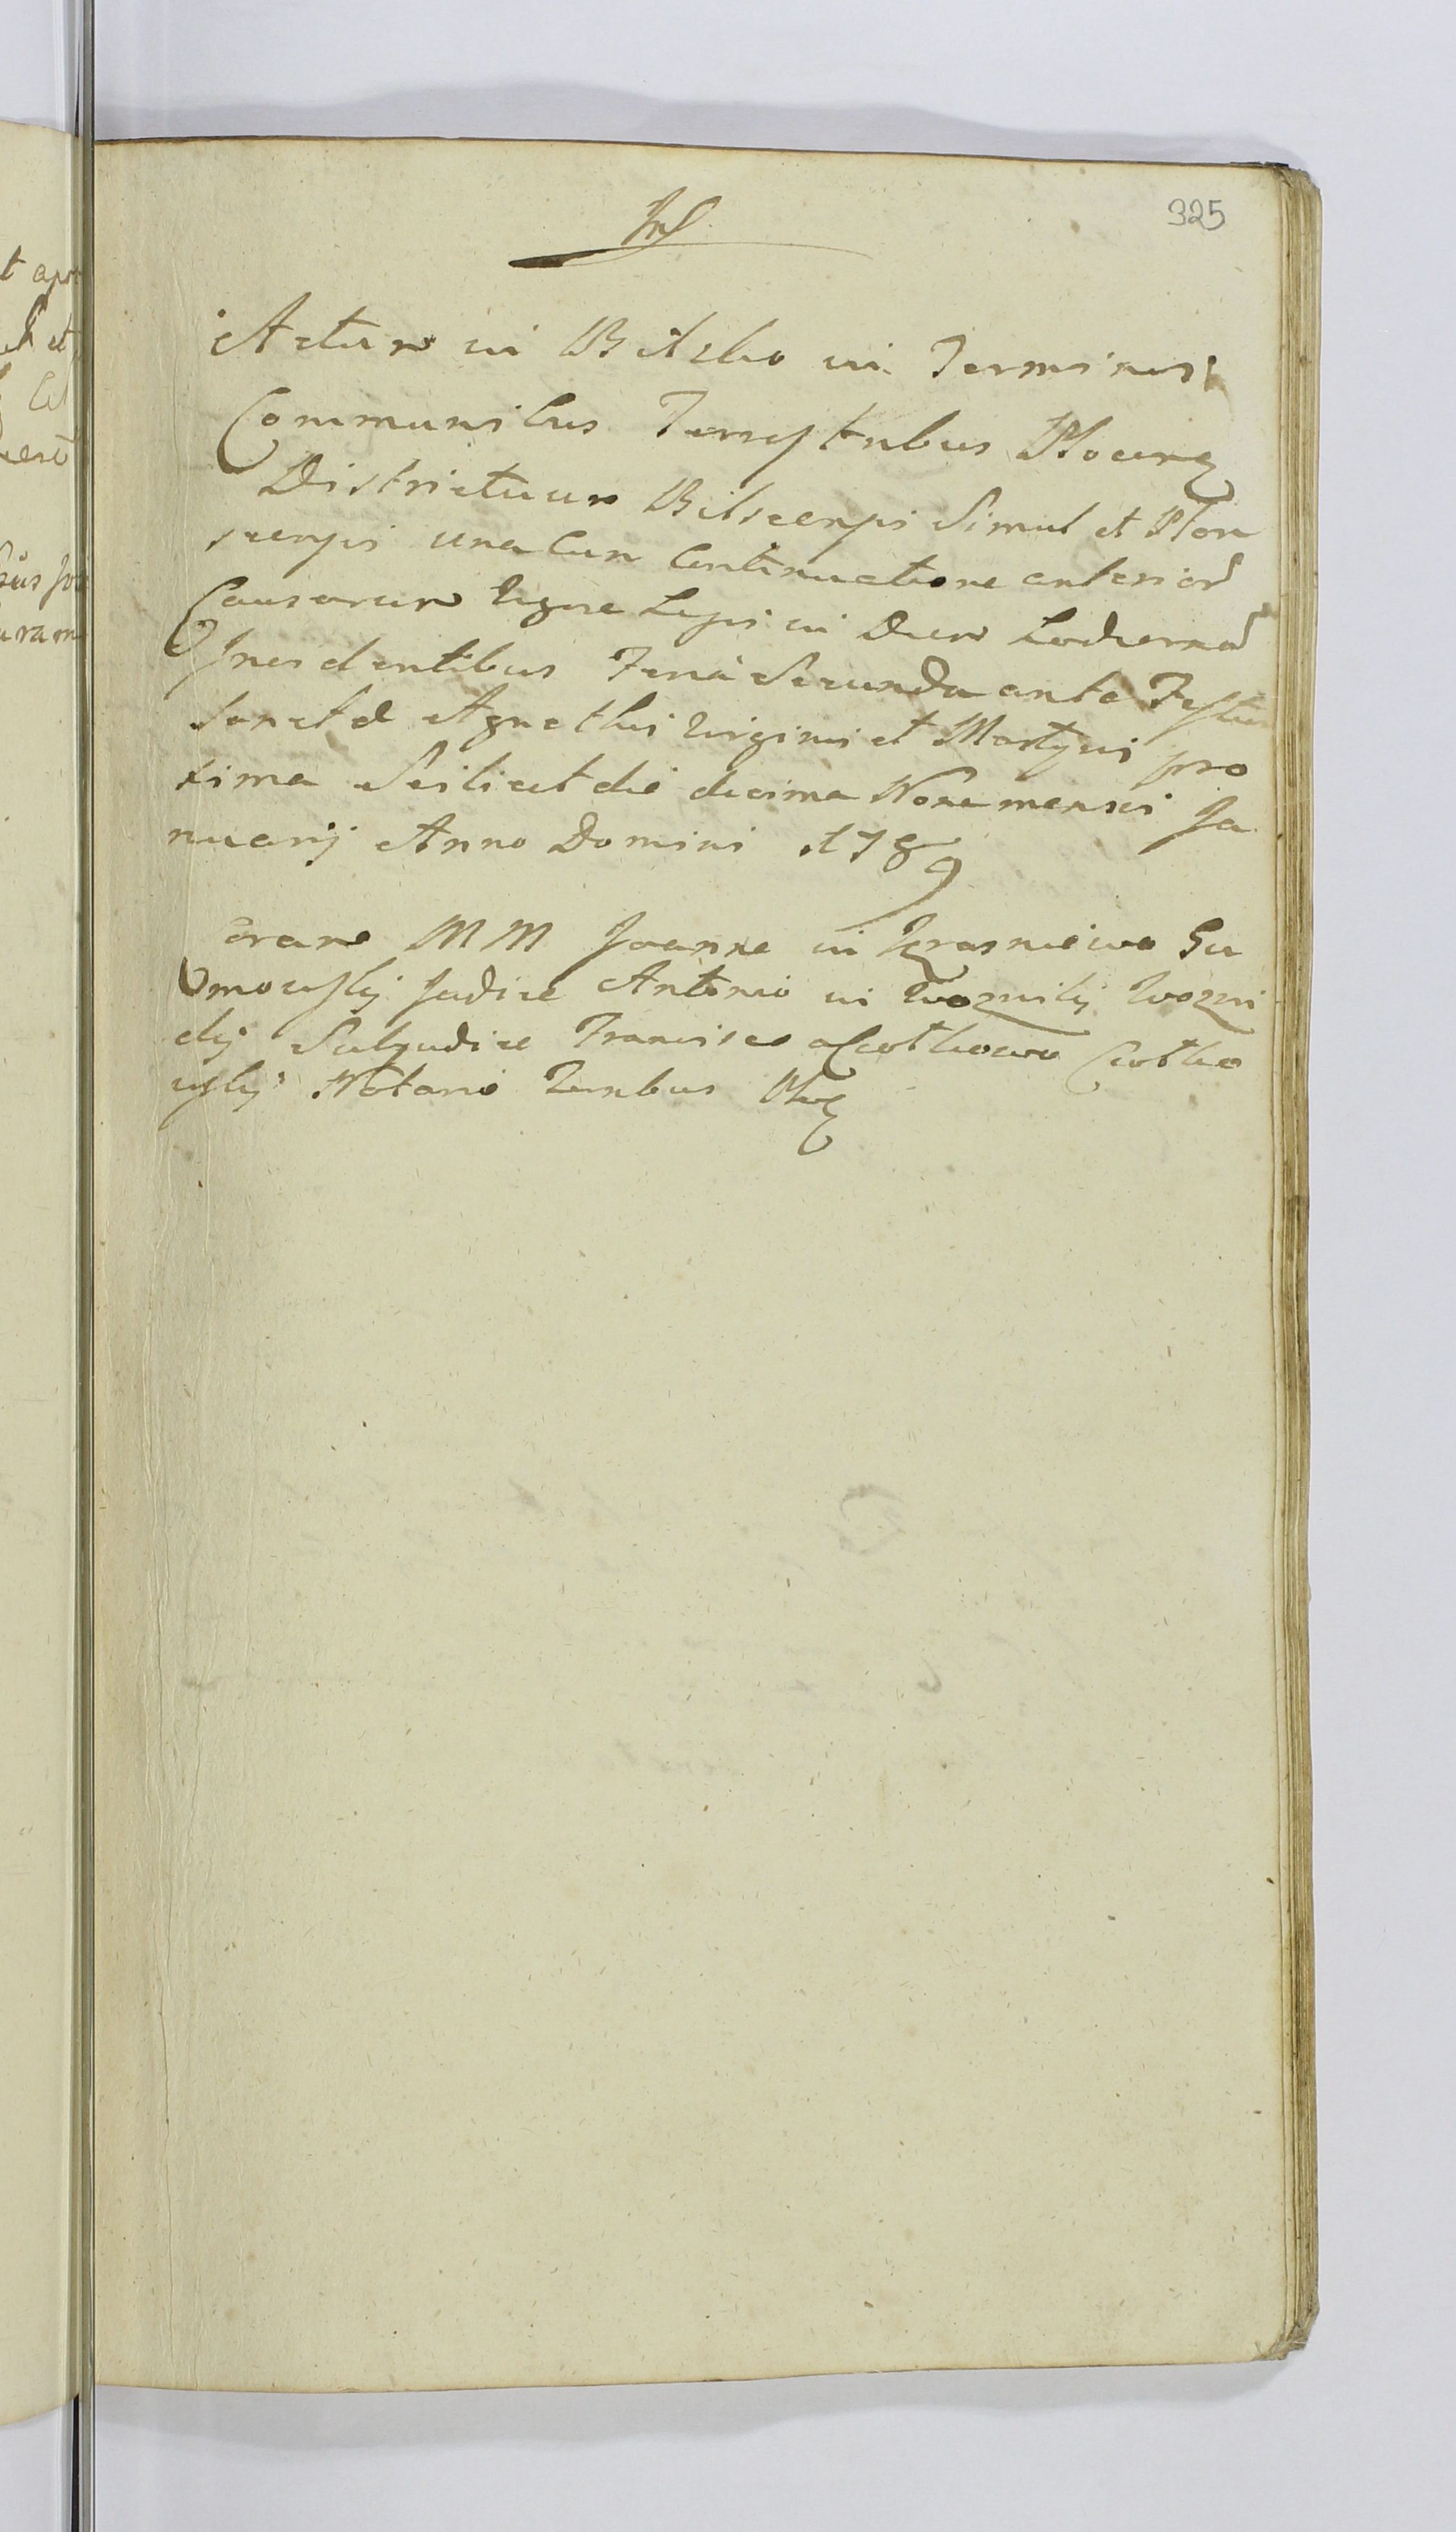 325
Actum in Bielsko in Terminis
Communibus Terrestribus Plocens
Districtuum Bilscensis Simul et Plon
scensis una cum Continuatione anterior
Causarum vigore Legis in Diem hodiernam
Incidentibus Feria Secunda ante Festum
Sanctae Agnethis Virginis et Martyris pro
xima Scilicet die decima Nona mensis Ja
nuarij Anno Domini 1789
Coram MM Joanne in Krasniewo Su
mowskij Judice Antonio in Woznikij Wozni
ckij Subjudice Francisco a Ciotkowo Ciotko
wskij Notario